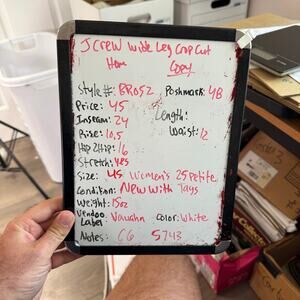 J CREW Wide Leg Crop Cut
Hem Copy
Style#: BR052 Poshmark: 48
Price: 45
Length:
Inseam: 24
Waist: 12
Rise: 10.5
Hip 2 Hip: 16
Stretch: Yes
Size: 45 Women's 25 Petite
Condition: New With Tags
Weight: 15oz
Vendoo Label Vaughn Color: White
Notes: C6 5743